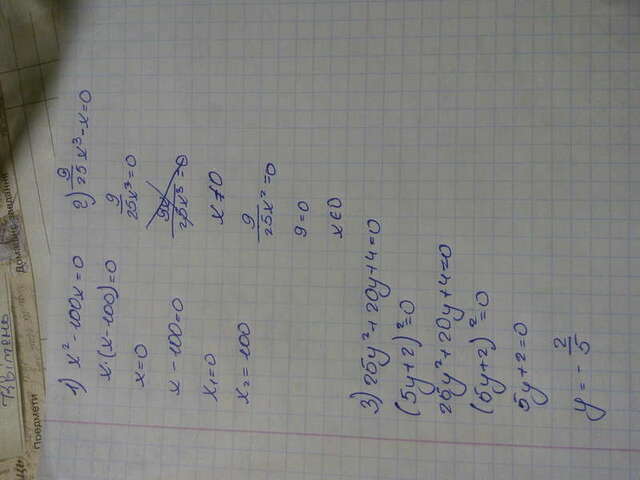 Квітень
Предмети
Домашнє завдання
1) x² - 100x = 0
x·(x-100)=0
x=0
x - 100=0
x₁=0
x₂=100
2) 9/25 x³ - x = 0
9/25x³ = 0
x≠0
9/25x² = 0
9=0
x∈0
3) 25y² + 20y + 4 = 0
(5y+2)² = 0
25y² + 20y + 4 = 0
(5y+2)² = 0
5y+2=0
y = - 2/5